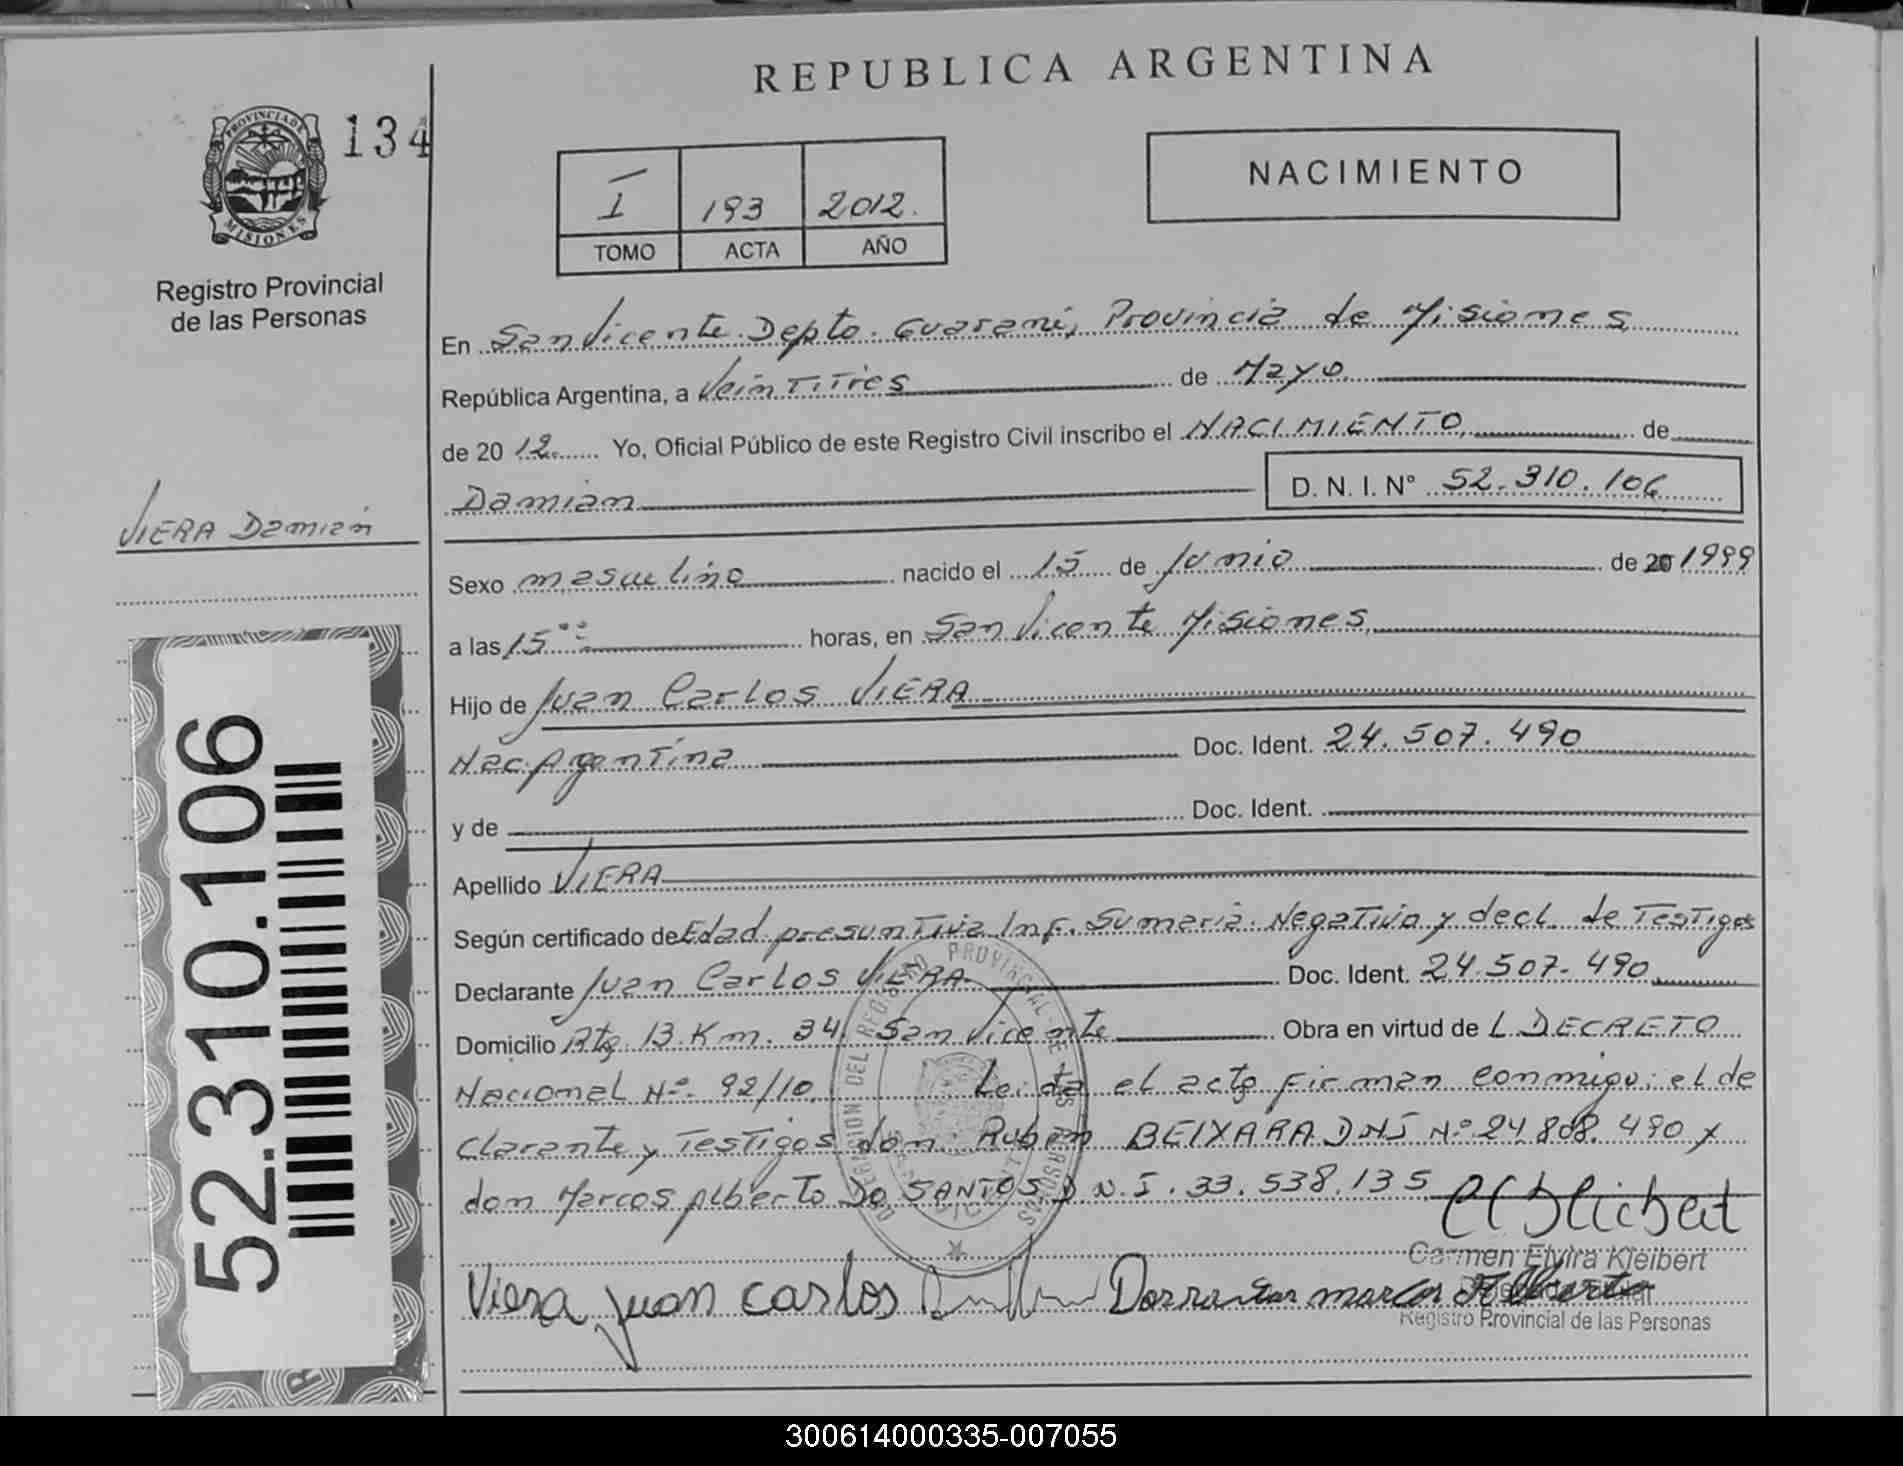 REPUBLICA ARGENTINA
PROVINCIA DE
MISIONES
134
Registro Provincial
de las Personas
I 193 2012.
TOMO ACTA AÑO
NACIMIENTO
En San Vicente Depto. Guaraní, Provincia de Misiones
República Argentina, a Veintitres de Mayo
de 20 12 Yo, Oficial Público de este Registro Civil inscribo el NACIMIENTO de
Damián D. N. I. N° 52.310.106
VIERA Damián
Sexo masculino nacido el 15 de Junio de 20 1999
a las 15 00 horas, en San Vicente Misiones
Hijo de Juan Carlos VIERA
Nac. Argentina Doc. Ident. 24.507.490
y de Doc. Ident.
Apellido VIERA
Según certificado de Edad presuntiva Inf. Sumaria. Negativa y decl. de Testigos
Declarante Juan Carlos VIERA Doc. Ident. 24.507.490
Domicilio Rta. 13 Km. 34 San Vicente Obra en virtud de L DECRETO
Nacional Nº. 92/10. Leida el acta firman conmigo; el de
clarante y Testigos don Ruben BEIXARA DNI Nº 24.808.490 y
don Marcos Alberto Do SANTOS D.N.I. 33.538.135
52.310.106
Carmen Elvira Kleibert
Viera juan carlos
Registro Provincial de las Personas
300614000335-007055